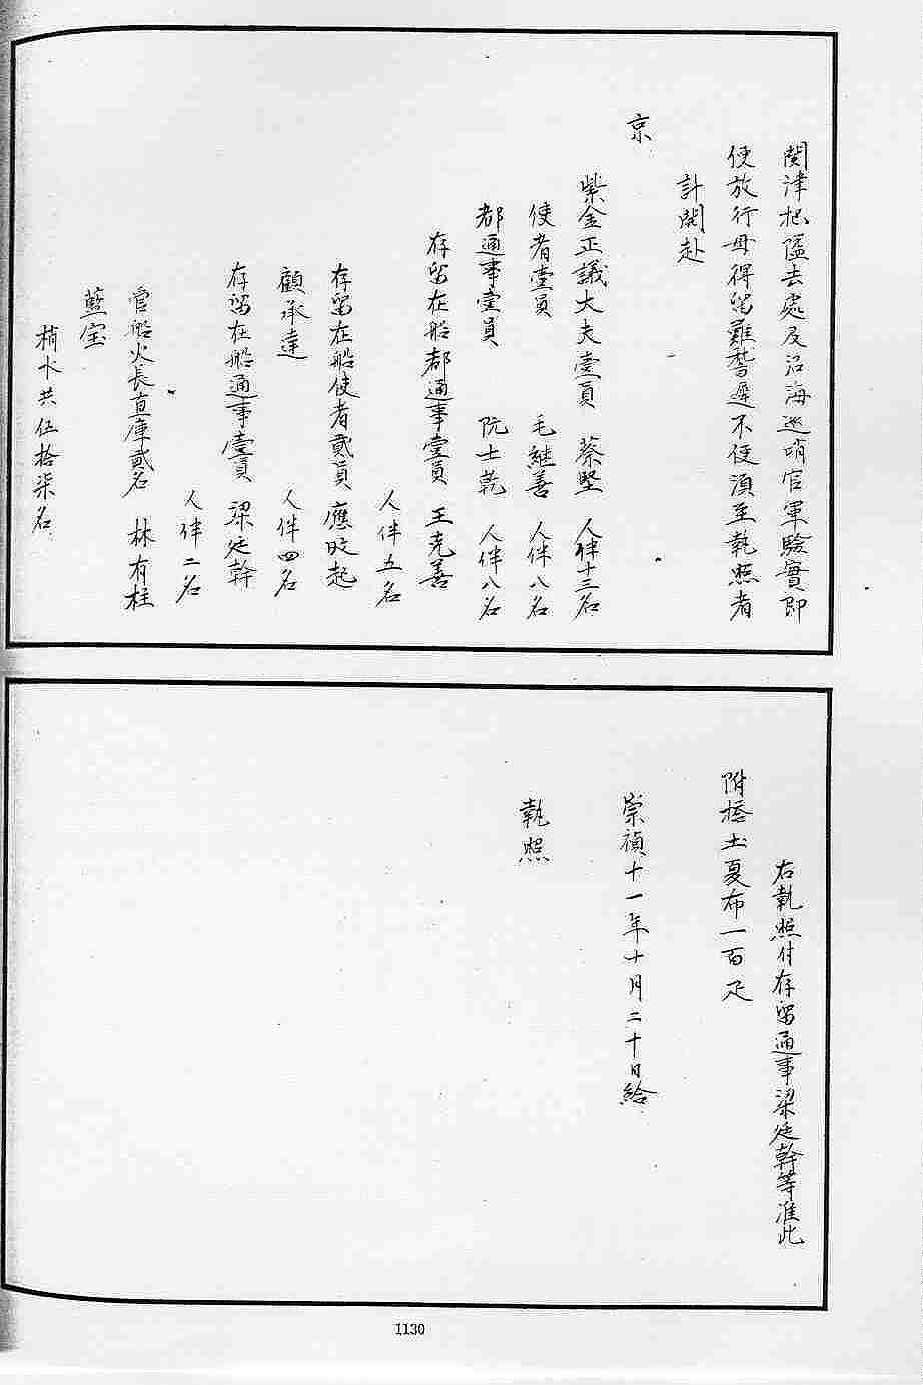 関津把隘去處及沿海巡哨官軍驗實即
便放行毋得留難遲不便須至執照者
計開赴
京
紫金正議大夫壹員 蔡堅 人伴十三名
使者壹員 毛継善 人伴八名
都通事壹員 阮士乾 人伴八名
存留在船都通事壹員 王克善
人伴五名
存留在船使者貳員 應時起
顧承達 人伴四名
存留在船通事壹員 梁廷幹
人伴二名
管船火長直庫貳名 林有柱
藍宝
梢水共伍拾柒名
右執照付存留通事梁廷幹等准此
附搭土夏布一百疋
崇禎十一年十月二十日給
執照
1130